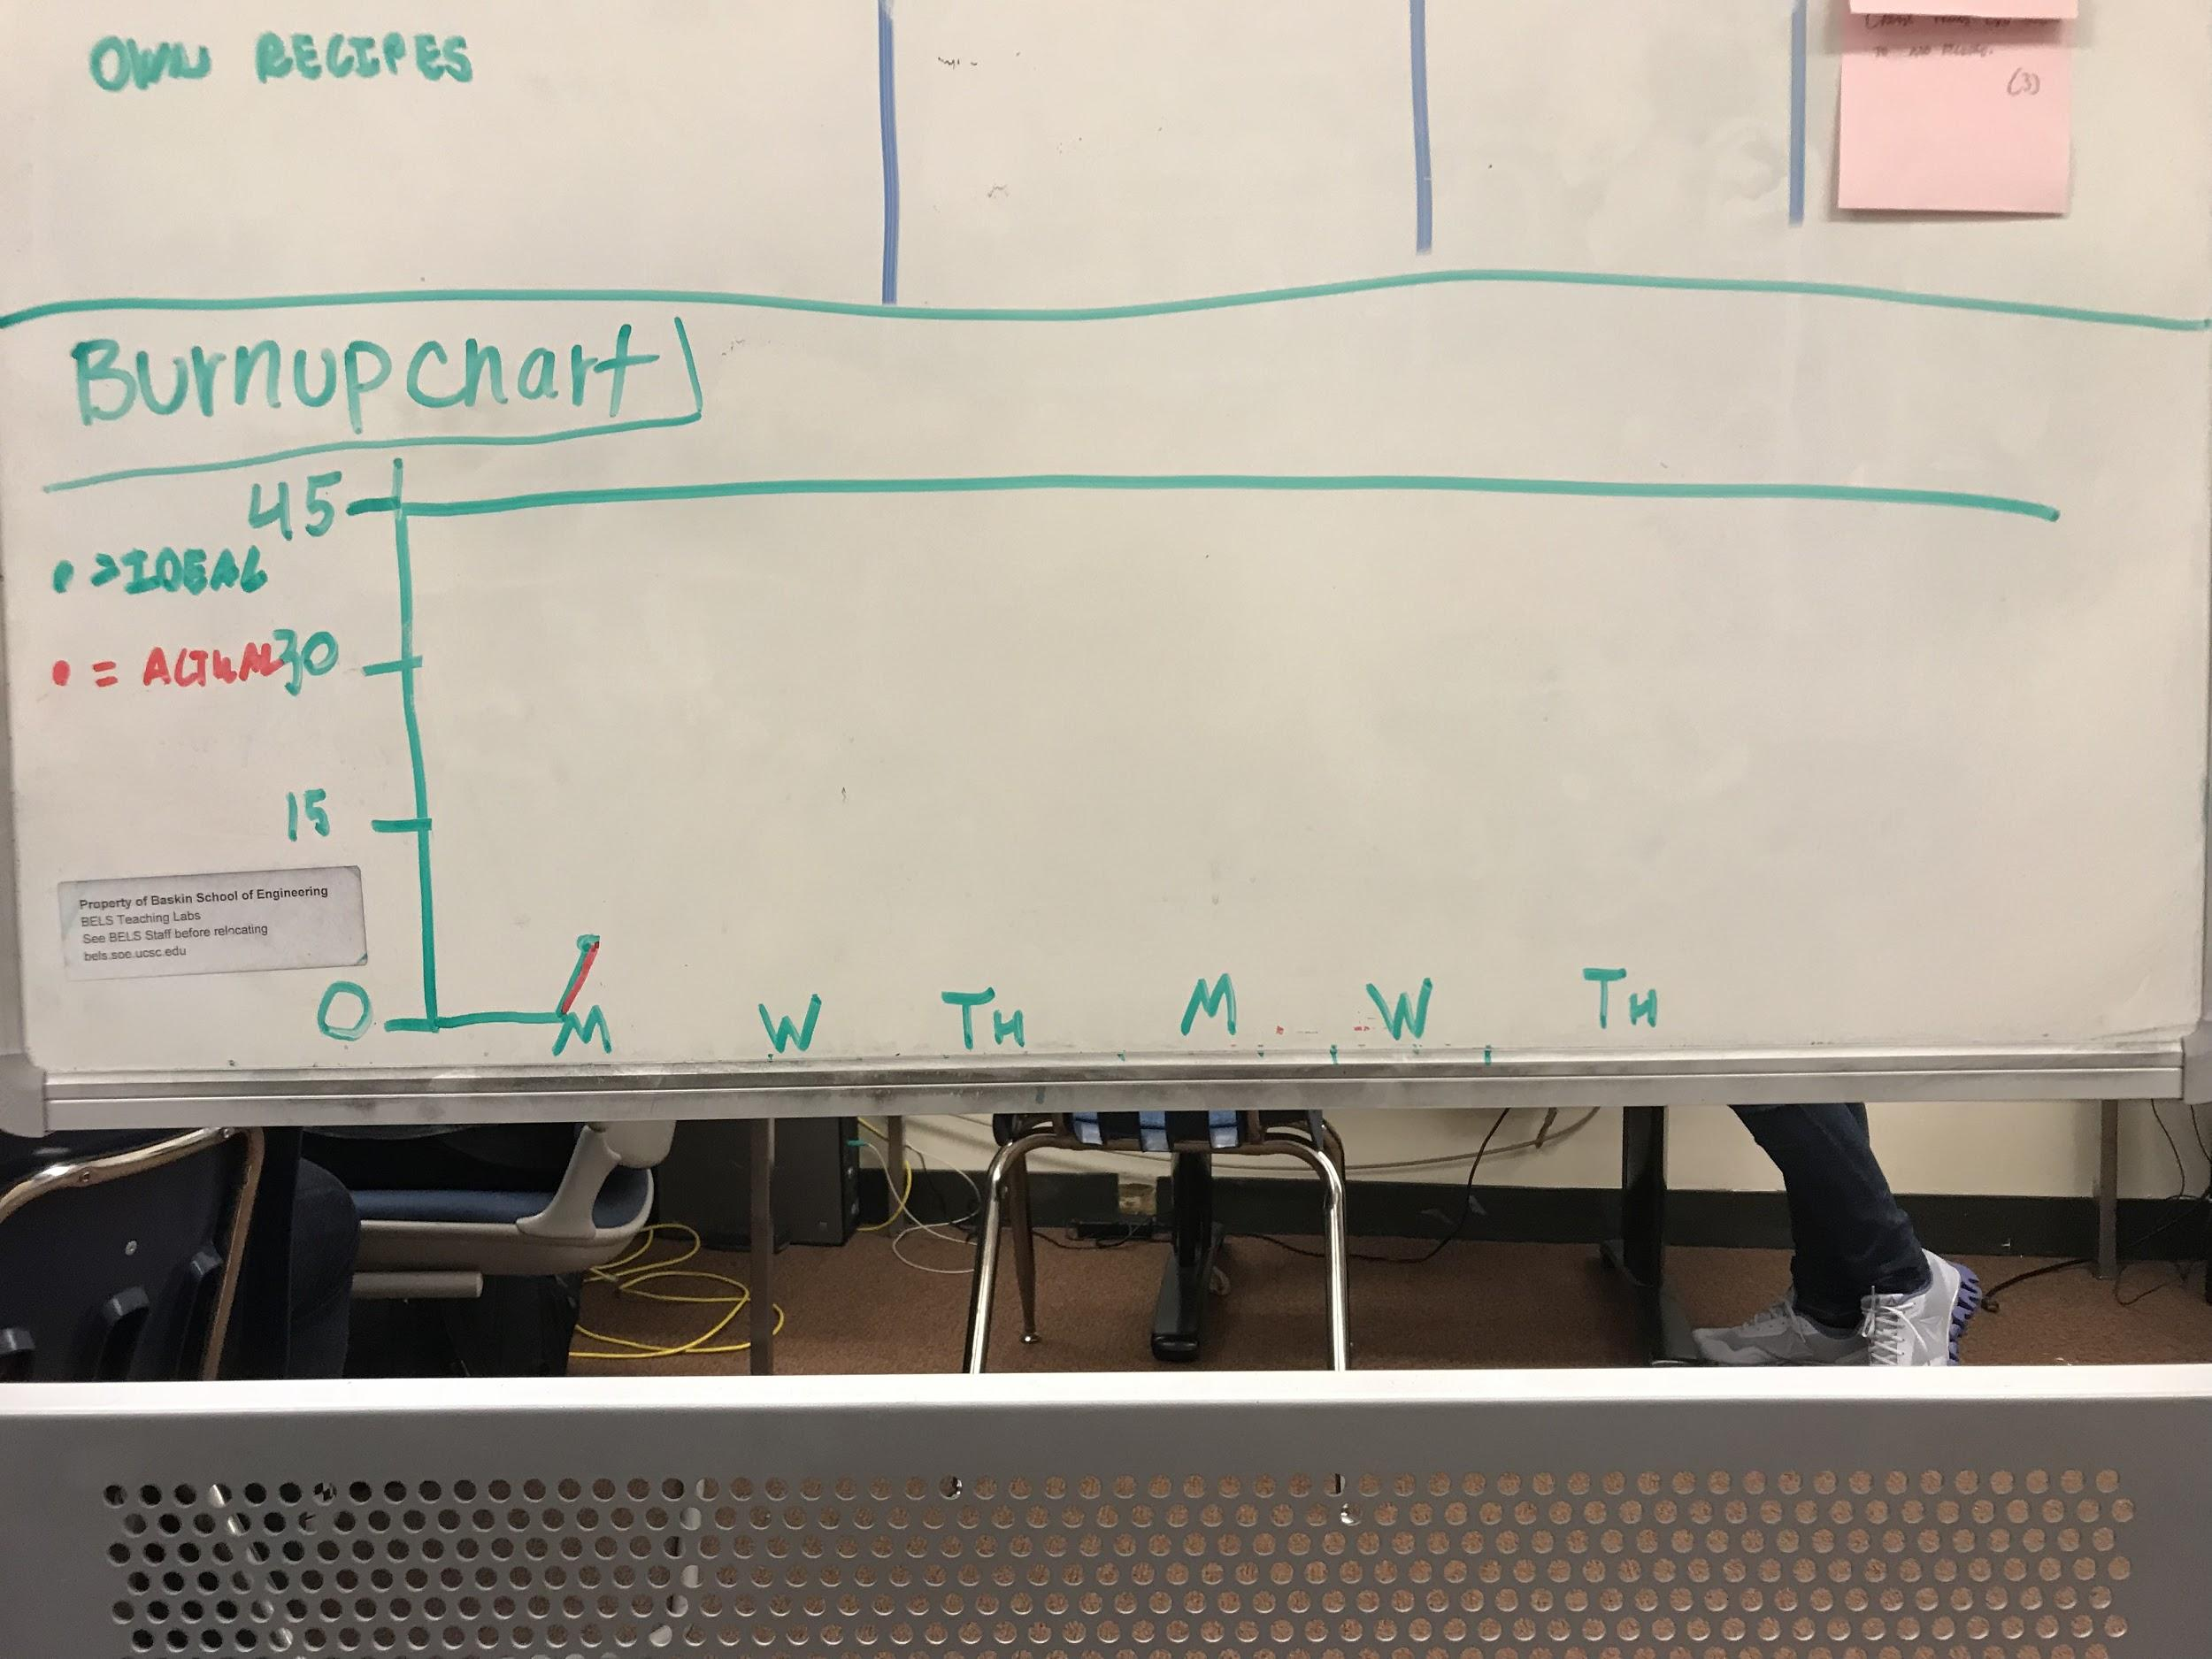 OWN RECIPES
TO ADD RECIPE.
(3)
Burnup chart
45
• > IDEAL
• = ACTUAL
30
15
Property of Baskin School of Engineering
BELS Teaching Labs
See BELS Staff before relocating
bels.soe.ucsc.edu
0
M W TH M W TH